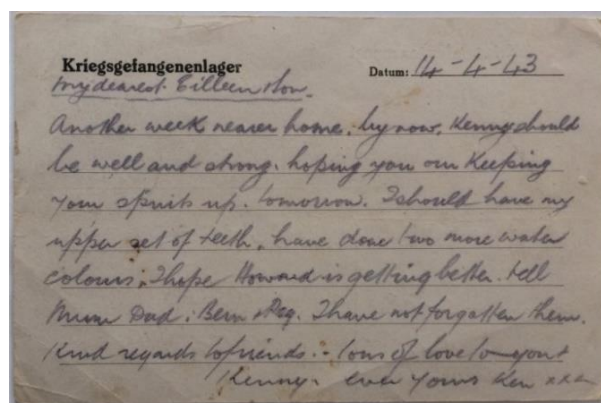 Kriegsgefangenenlager Datum: 14-4-43
My dearest Eilleen &
Another week nearer home, by now, Kenny should
be well and strong. hoping you are keeping
your spirits up. tomorrow. I should have my
upper set of teeth, have done two more water
colours; I hope Howard is getting better. tell
Mum Dad; Bern & Peg. I have not forgotten them.
Kind regards to friends. - tons of love to you &
Kenny. ever yours Ken xxx